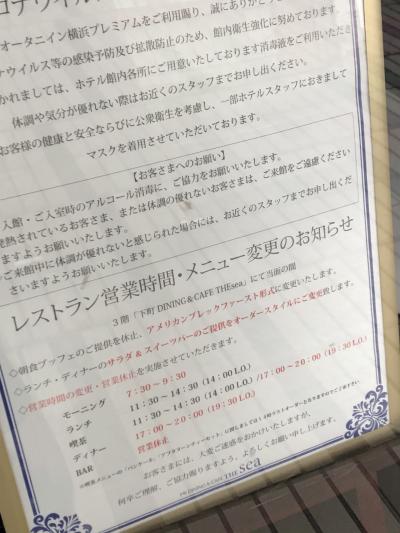 オータニイン横浜プレミアムをご利用賜り、誠にありがとう
ナウイルス等の感染予防及び拡散防止のため、館内衛生強化に努めております。
かれましては、ホテル館内各所にご用意いたしております消毒液をご利用いただき
体調や気分が優れない際はお近くのスタッフまでお申し出ください。
お客様の健康と安全ならびに公衆衛生を考慮し、一部ホテルスタッフにおきまして
マスクを着用させていただいております。
【お客さまへのお願い】
入館・ご入室時のアルコール消毒に、ご協力をお願いいたします。
発熱されているお客さま、または体調の優れないお客さまは、ご来館をご遠慮ください
ますようお願いいたします。
ご来館中に体調が優れないと感じられた場合には、お近くのスタッフまでお申し出くだ
さいますようお願いいたします。
レストラン営業時間・メニュー変更のお知らせ
3階「下町 DINING&CAFE THEsea」にて当面の間
◇朝食ブッフェのご提供を休止、アメリカンブレックファースト形式に変更いたします。
◇ランチ・ディナーのサラダ&スイーツバーのご提供をオーダースタイルにご変更致します。
◇営業時間の変更・営業休止を実施させていただきます。
モーニング 7:30~9:30
ランチ 11:30~14:30(14:00L.O.)
喫茶 11:30~14:30(14:00L.O.)/17:00~20:00(19:30L.O.)
ディナー 17:00~20:00(19:30L.O.)
BAR 営業休止
お客さまには、大変ご迷惑をおかけいたしますが、
何卒ご理解、ご協力賜りますよう、よろしくお願い申し上げます。
DINING & CAFE THE sea